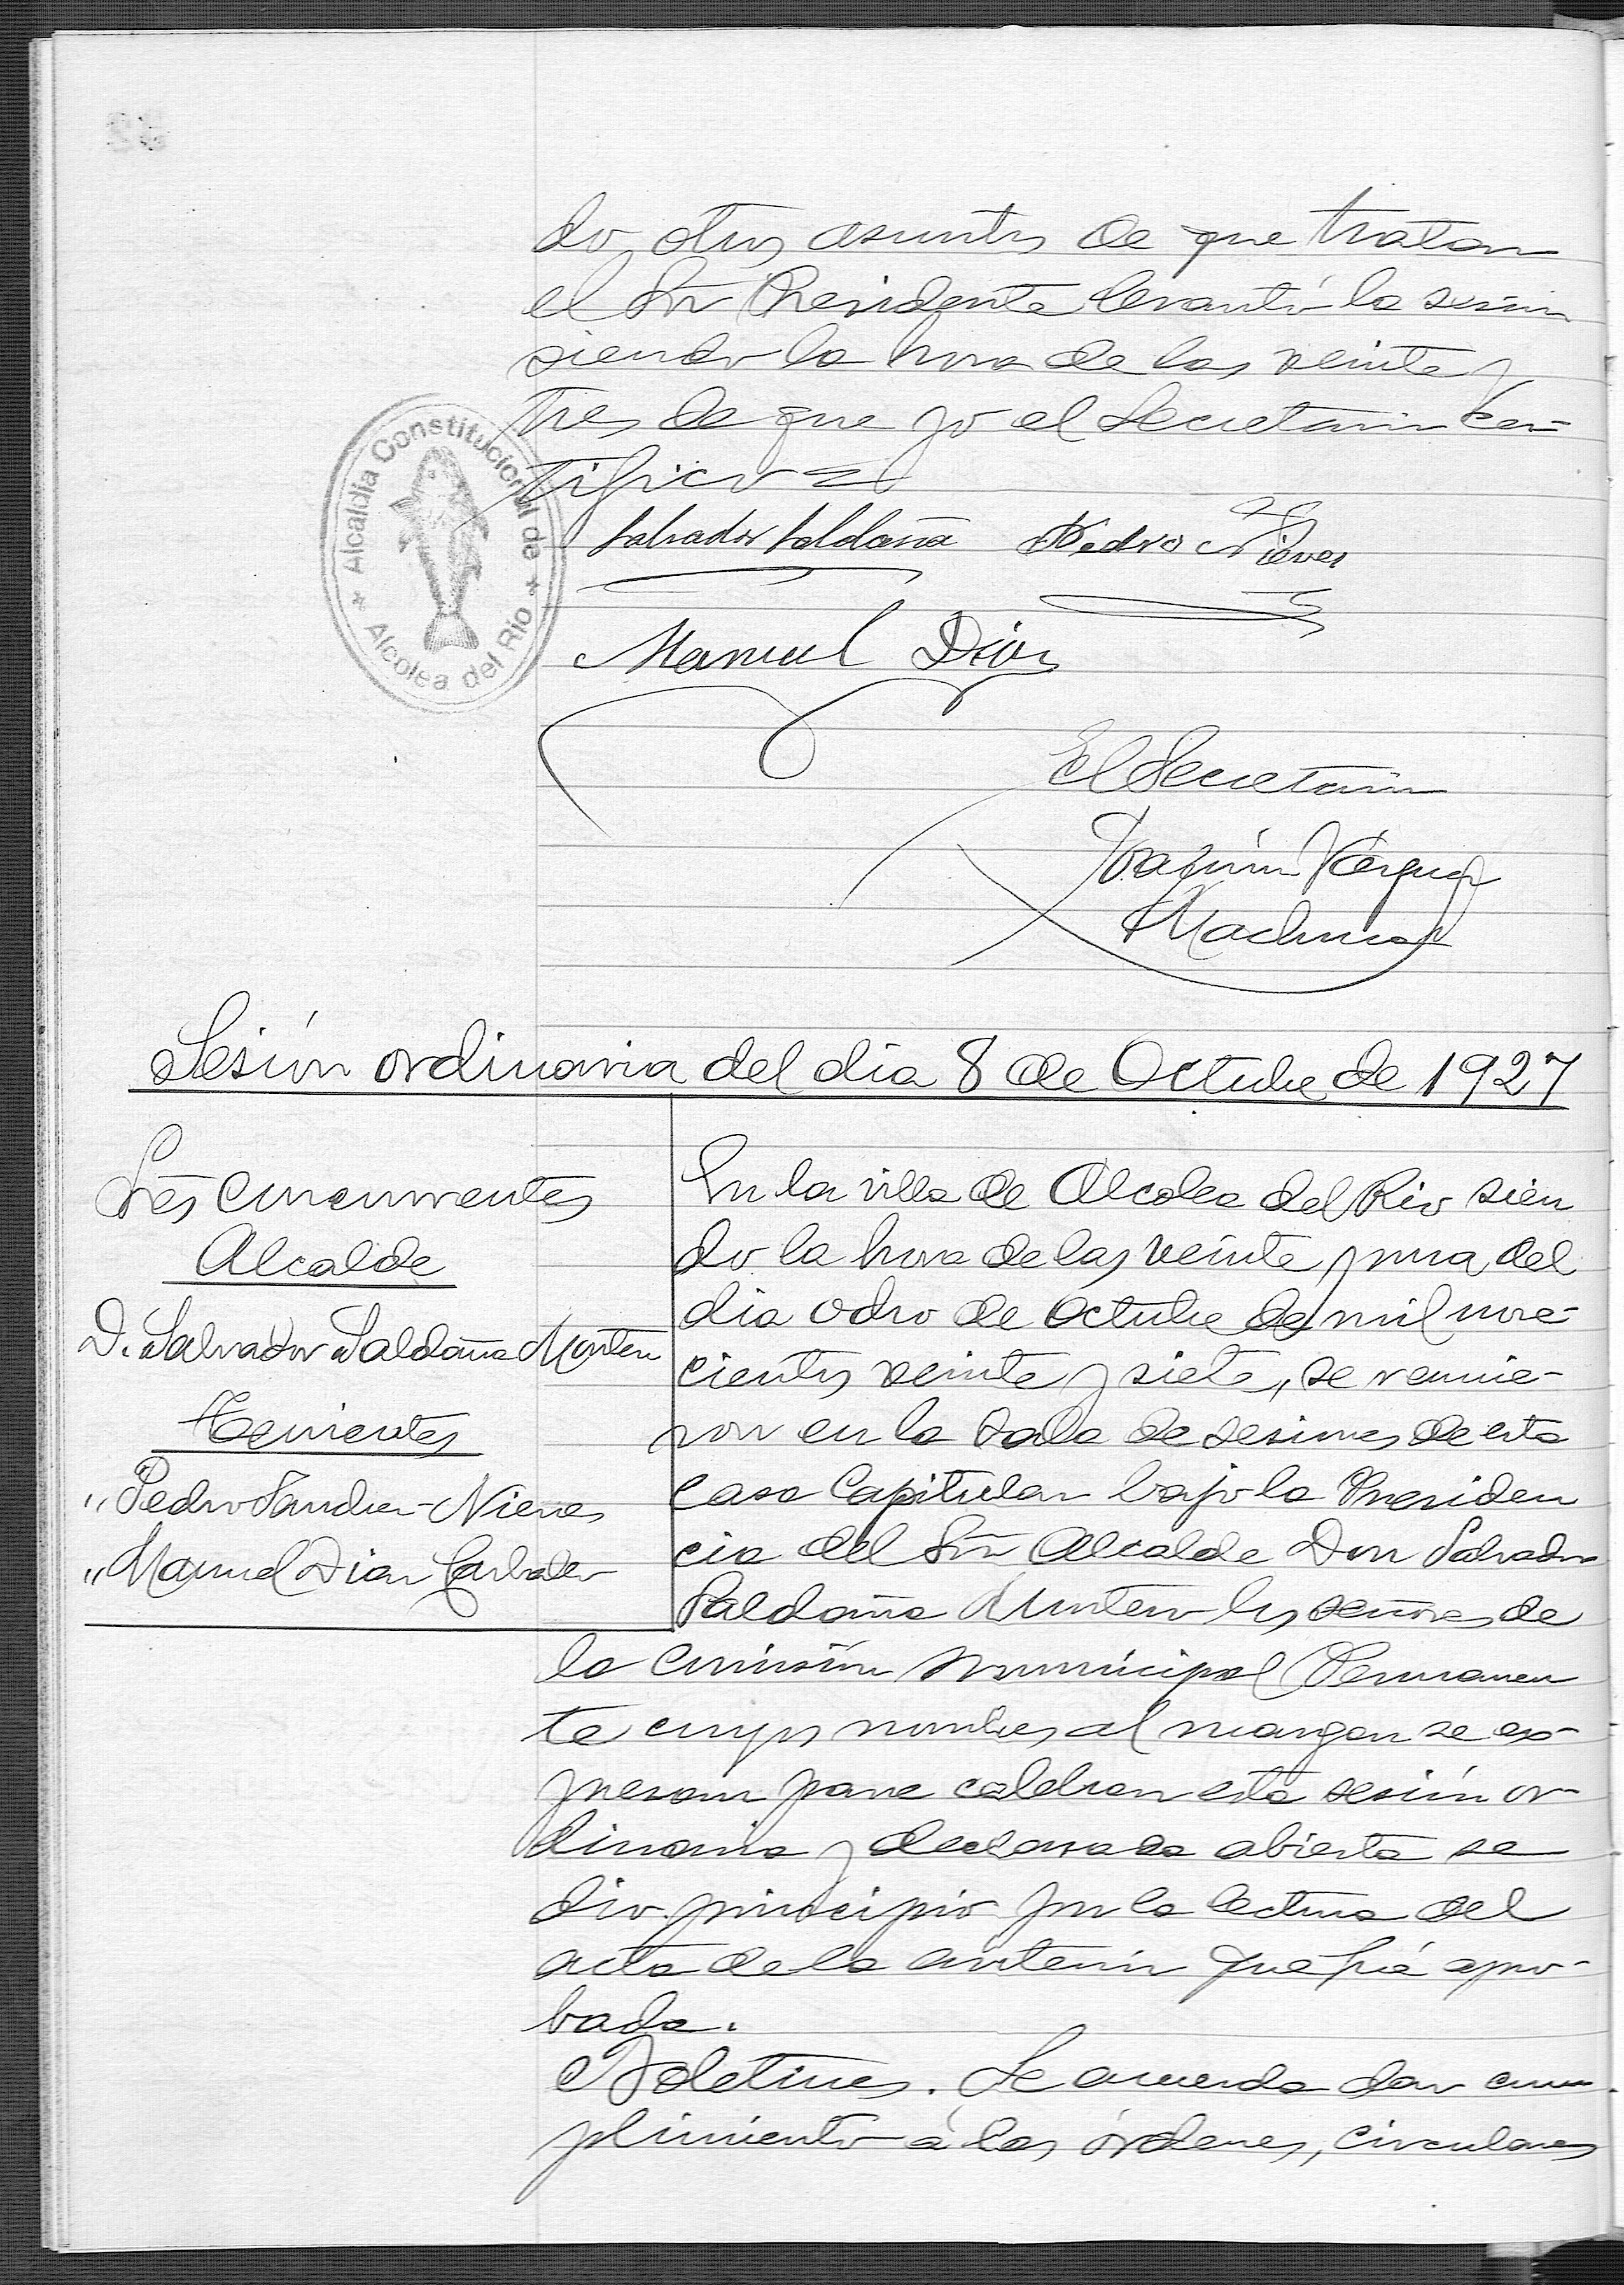 do otros asuntos de que tratar
el Sr Presidente levantó la sesión
siendo la hora de las veinte y
tres de que yo el Secretario cer-
tifico =
Alcaldia Constitucional de
Alcolea del Rio
Salvador Saldaña Pedro S Nieves
Manuel Dias
El Secretario
Joaquin Vázquez
Machuca
Sesión ordinaria del dia 8 de Octubre de 1927
Sres Concurrentes
Alcalde
D. Salvador Saldaña Montero
Tenientes
" Pedro Sanchez Nieves
" Manuel Dias Carballo
En la villa de Alcolea del Rio sien
do la hora de las veinte y una del
dia ocho de Octubre de mil nove-
cientos veinte y siete, se reunie-
ron en la Sala de sesiones de esta
casa Capitular bajo la Presiden
cia del Sr Alcalde Don Salvador
Saldaña Montero los señores de
la Comisión Municipal Permanen
te cuyos nombres al margen se ex-
presan para celebrar esta sesión or-
dinaria y declarada abierta se
dio principio por la lectura del
acta de la anterior que fué apro-
bada.
Boletines. Se acuerda dar cum-
plimiento á las órdenes, circulares